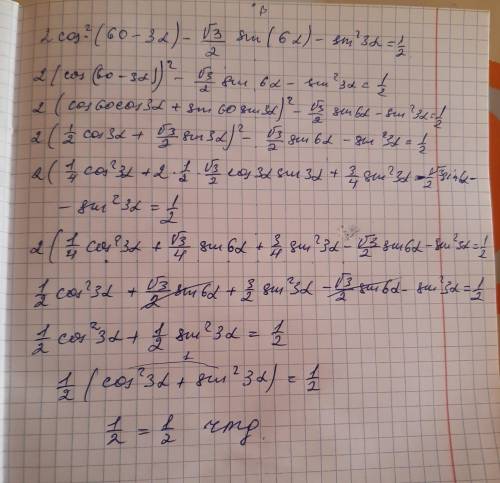 2 cos²(60 - 3α) - √3/2 sin(6α) - sin²3α = 1/2
2 (cos(60 - 3α))² - √3/2 sin 6α - sin²3α = 1/2
2 (cos60cos3α + sin60sin3α)² - √3/2 sin6α - sin²3α = 1/2
2 (1/2 cos3α + √3/2 sin3α)² - √3/2 sin6α - sin²3α = 1/2
2 (1/4 cos²3α + 2·1/2·√3/2 cos3α sin3α + 3/4 sin²3α - √3/2 sin6α -
- sin²3α = 1/2
2 (1/4 cos²3α + √3/4 sin6α + 3/4 sin²3α - √3/2 sin6α - sin²3α = 1/2
1/2 cos²3α + √3/2 sin6α + 3/2 sin²3α - √3/2 sin6α - sin²3α = 1/2
1/2 cos²3α + 1/2 sin²3α = 1/2
1
1/2 (cos²3α + sin²3α) = 1/2
1/2 = 1/2 чтд.